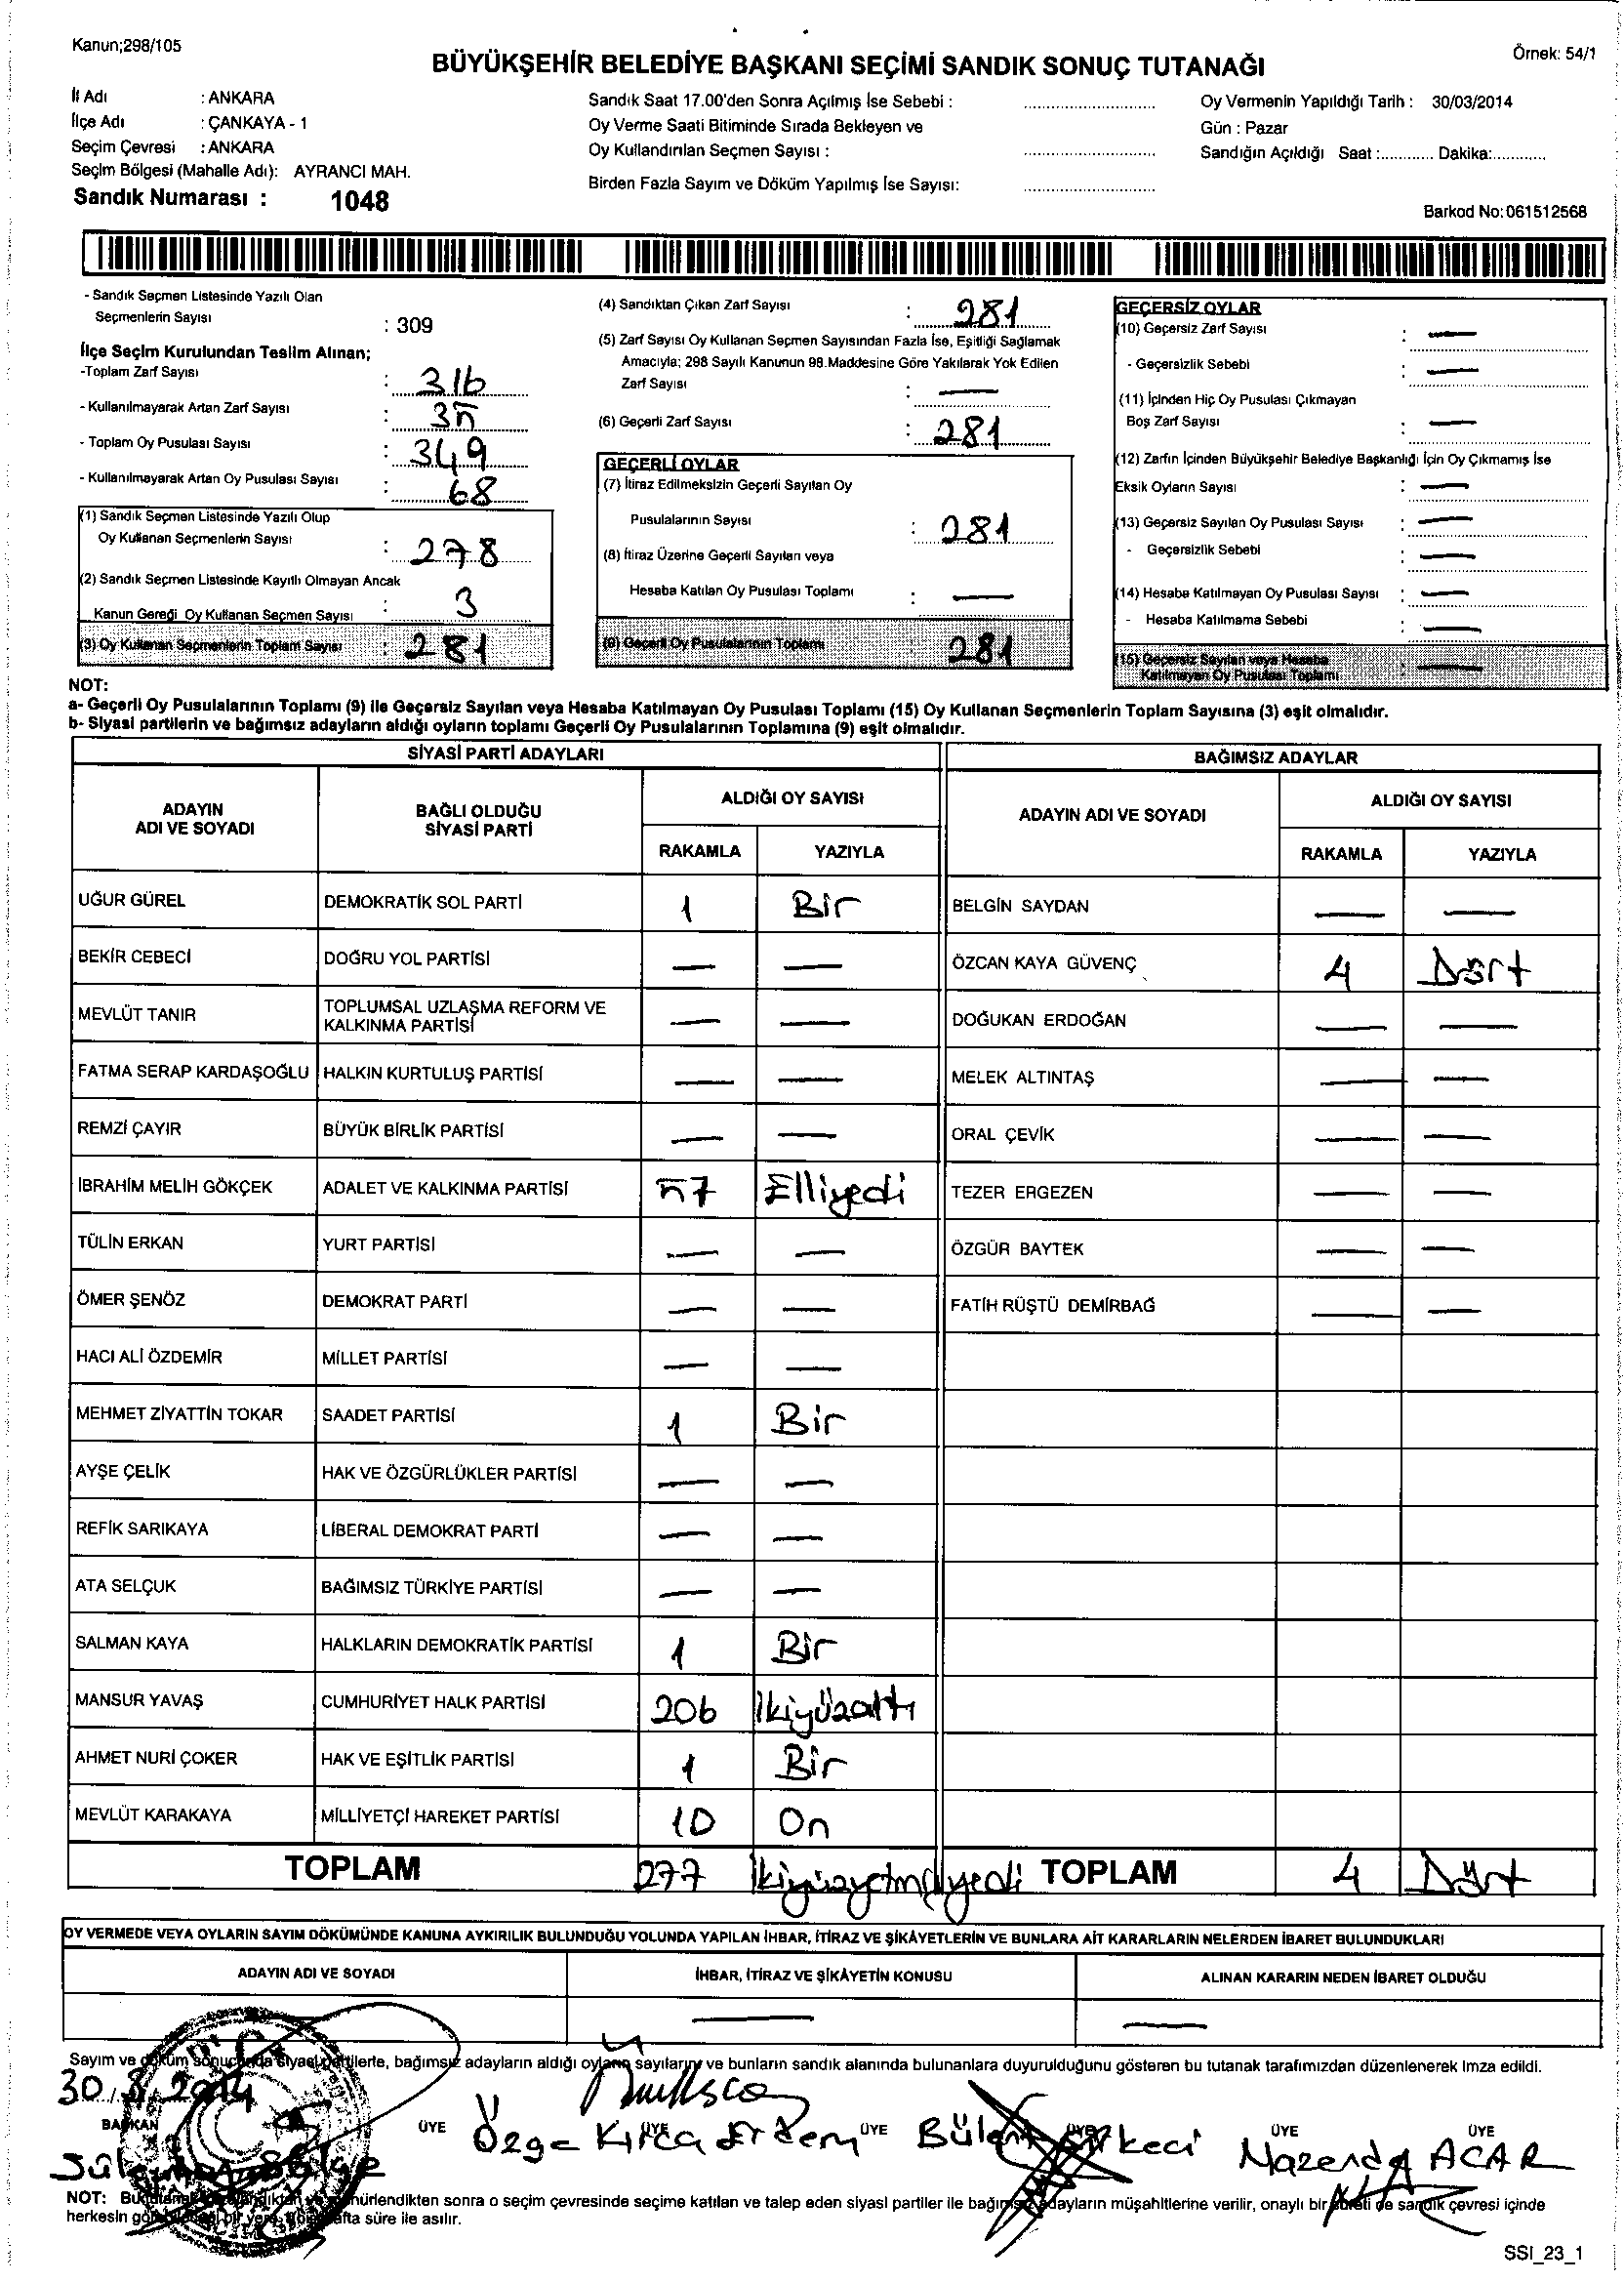 Kanun;298/105
BÜYÜKŞEHİR BELEDİYE BAŞKANI SEÇİMİ SANDIK SONUÇ TUTANAĞI
Örnek: 54/1
İl Adı : ANKARA
İlçe Adı : ÇANKAYA - 1
Seçim Çevresi : ANKARA
Seçim Bölgesi (Mahalle Adı): AYRANCI MAH.
Sandık Numarası : 1048
Sandık Saat 17.00'den Sonra Açılmış İse Sebebi :
Oy Verme Saati Bitiminde Sırada Bekleyen ve
Oy Kullandırılan Seçmen Sayısı :
Birden Fazla Sayım ve Döküm Yapılmış İse Sayısı:
Oy Vermenin Yapıldığı Tarih : 30/03/2014
Gün : Pazar
Sandığın Açıldığı Saat :............ Dakika:............
Barkod No: 061512568
- Sandık Seçmen Listesinde Yazılı Olan
Seçmenlerin Sayısı : 309
İlçe Seçim Kurulundan Teslim Alınan;
-Toplam Zarf Sayısı : 316
- Kullanılmayarak Artan Zarf Sayısı : 35
- Toplam Oy Pusulası Sayısı : 349
- Kullanılmayarak Artan Oy Pusulası Sayısı : 68
(1) Sandık Seçmen Listesinde Yazılı Olup
Oy Kullanan Seçmenlerin Sayısı : 278
(2) Sandık Seçmen Listesinde Kayıtlı Olmayan Ancak
Kanun Gereği Oy Kullanan Seçmen Sayısı : 3
(3) Oy Kullanan Seçmenlerin Toplam Sayısı : 281
(4) Sandıktan Çıkan Zarf Sayısı : 281
(5) Zarf Sayısı Oy Kullanan Seçmen Sayısından Fazla İse, Eşitliği Sağlamak
Amacıyla; 298 Sayılı Kanunun 98.Maddesine Göre Yakılarak Yok Edilen
Zarf Sayısı : —
(6) Geçerli Zarf Sayısı : 281
GEÇERLİ OYLAR
(7) İtiraz Edilmeksizin Geçerli Sayılan Oy
Pusulalarının Sayısı : 281
(8) İtiraz Üzerine Geçerli Sayılan veya
Hesaba Katılan Oy Pusulası Toplamı : —
(9) Geçerli Oy Pusulalarının Toplamı : 281
GEÇERSİZ OYLAR
(10) Geçersiz Zarf Sayısı : —
- Geçersizlik Sebebi : —
(11) İçinden Hiç Oy Pusulası Çıkmayan
Boş Zarf Sayısı : —
(12) Zarfın İçinden Büyükşehir Belediye Başkanlığı İçin Oy Çıkmamış İse
Eksik Oyların Sayısı : —
(13) Geçersiz Sayılan Oy Pusulası Sayısı : —
- Geçersizlik Sebebi : —
(14) Hesaba Katılmayan Oy Pusulası Sayısı : —
- Hesaba Katılmama Sebebi : —
(15) Geçersiz Sayılan veya Hesaba
Katılmayan Oy Pusulası Toplamı : —
NOT:
a- Geçerli Oy Pusulalarının Toplamı (9) ile Geçersiz Sayılan veya Hesaba Katılmayan Oy Pusulası Toplamı (15) Oy Kullanan Seçmenlerin Toplam Sayısına (3) eşit olmalıdır.
b- Siyasi partilerin ve bağımsız adayların aldığı oyların toplamı Geçerli Oy Pusulalarının Toplamına (9) eşit olmalıdır.
SİYASİ PARTİ ADAYLARI BAĞIMSIZ ADAYLAR
ADAYIN ADI VE SOYADI BAĞLI OLDUĞU SİYASİ PARTİ ALDIĞI OY SAYISI ADAYIN ADI VE SOYADI ALDIĞI OY SAYISI
RAKAMLA YAZIYLA RAKAMLA YAZIYLA
UĞUR GÜREL DEMOKRATİK SOL PARTİ 1 Bir BELGİN SAYDAN — —
BEKİR CEBECİ DOĞRU YOL PARTİSİ — — ÖZCAN KAYA GÜVENÇ 4 Dört
MEVLÜT TANIR TOPLUMSAL UZLAŞMA REFORM VE KALKINMA PARTİSİ — — DOĞUKAN ERDOĞAN — —
FATMA SERAP KARDAŞOĞLU HALKIN KURTULUŞ PARTİSİ — — MELEK ALTINTAŞ — —
REMZİ ÇAYIR BÜYÜK BİRLİK PARTİSİ — — ORAL ÇEVİK — —
İBRAHİM MELİH GÖKÇEK ADALET VE KALKINMA PARTİSİ 57 Elliyedi TEZER ERGEZEN — —
TÜLİN ERKAN YURT PARTİSİ — — ÖZGÜR BAYTEK — —
ÖMER ŞENÖZ DEMOKRAT PARTİ — — FATİH RÜŞTÜ DEMİRBAĞ — —
HACI ALİ ÖZDEMİR MİLLET PARTİSİ — —
MEHMET ZİYATTİN TOKAR SAADET PARTİSİ 1 Bir
AYŞE ÇELİK HAK VE ÖZGÜRLÜKLER PARTİSİ — —
REFİK SARIKAYA LİBERAL DEMOKRAT PARTİ — —
ATA SELÇUK BAĞIMSIZ TÜRKİYE PARTİSİ — —
SALMAN KAYA HALKLARIN DEMOKRATİK PARTİSİ 1 Bir
MANSUR YAVAŞ CUMHURİYET HALK PARTİSİ 206 İkiyüzaltı
AHMET NURİ ÇOKER HAK VE EŞİTLİK PARTİSİ 1 Bir
MEVLÜT KARAKAYA MİLLİYETÇİ HAREKET PARTİSİ 10 On
TOPLAM 277 İkiyüzyetmişyedi TOPLAM 4 Dört
OY VERMEDE VEYA OYLARIN SAYIM DÖKÜMÜNDE KANUNA AYKIRILIK BULUNDUĞU YOLUNDA YAPILAN İHBAR, İTİRAZ VE ŞİKÂYETLERİN VE BUNLARA AİT KARARLARIN NELERDEN İBARET BULUNDUKLARI
ADAYIN ADI VE SOYADI İHBAR, İTİRAZ VE ŞİKÂYETİN KONUSU ALINAN KARARIN NEDEN İBARET OLDUĞU
— —
Sayım ve döküm sonucunda siyasi partilerle, bağımsız adayların aldığı oyların sayılarını ve bunların sandık alanında bulunanlara duyurulduğunu gösteren bu tutanak tarafımızdan düzenlenerek imza edildi.
30.3.2014
BAŞKAN ÜYE ÜYE ÜYE ÜYE ÜYE ÜYE
Özge Erdem Bülent Nazende ACAR
NOT: Bu sonra o seçim çevresinde seçime katılan ve talep eden siyasi partiler ile bağımsız adayların müşahitlerine verilir, onaylı bir sureti de sandık çevresi içinde
herkesin hafta süre ile asılır.
SSI_23_1